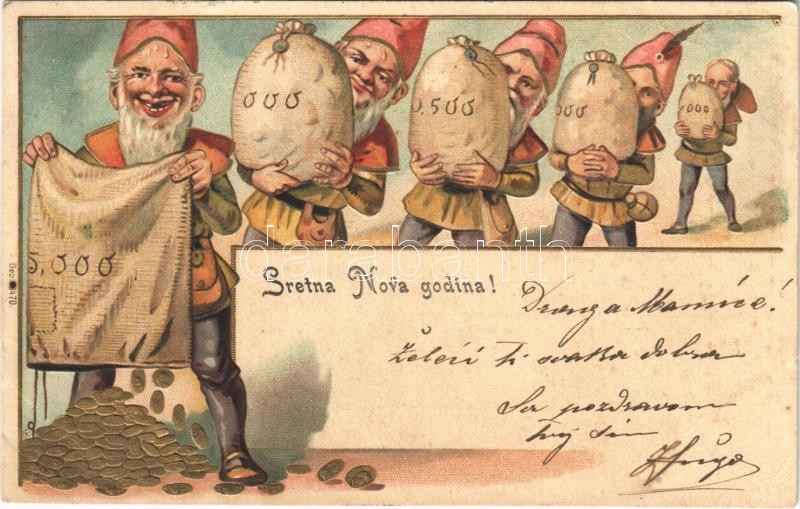 000
0,500
000
,000
5,000
Dep 9470
darabanth
Sretna Nova godina!
Draga Mamice!
Želeći ti svaka dobra
Sa pozdravom
tvoj sin